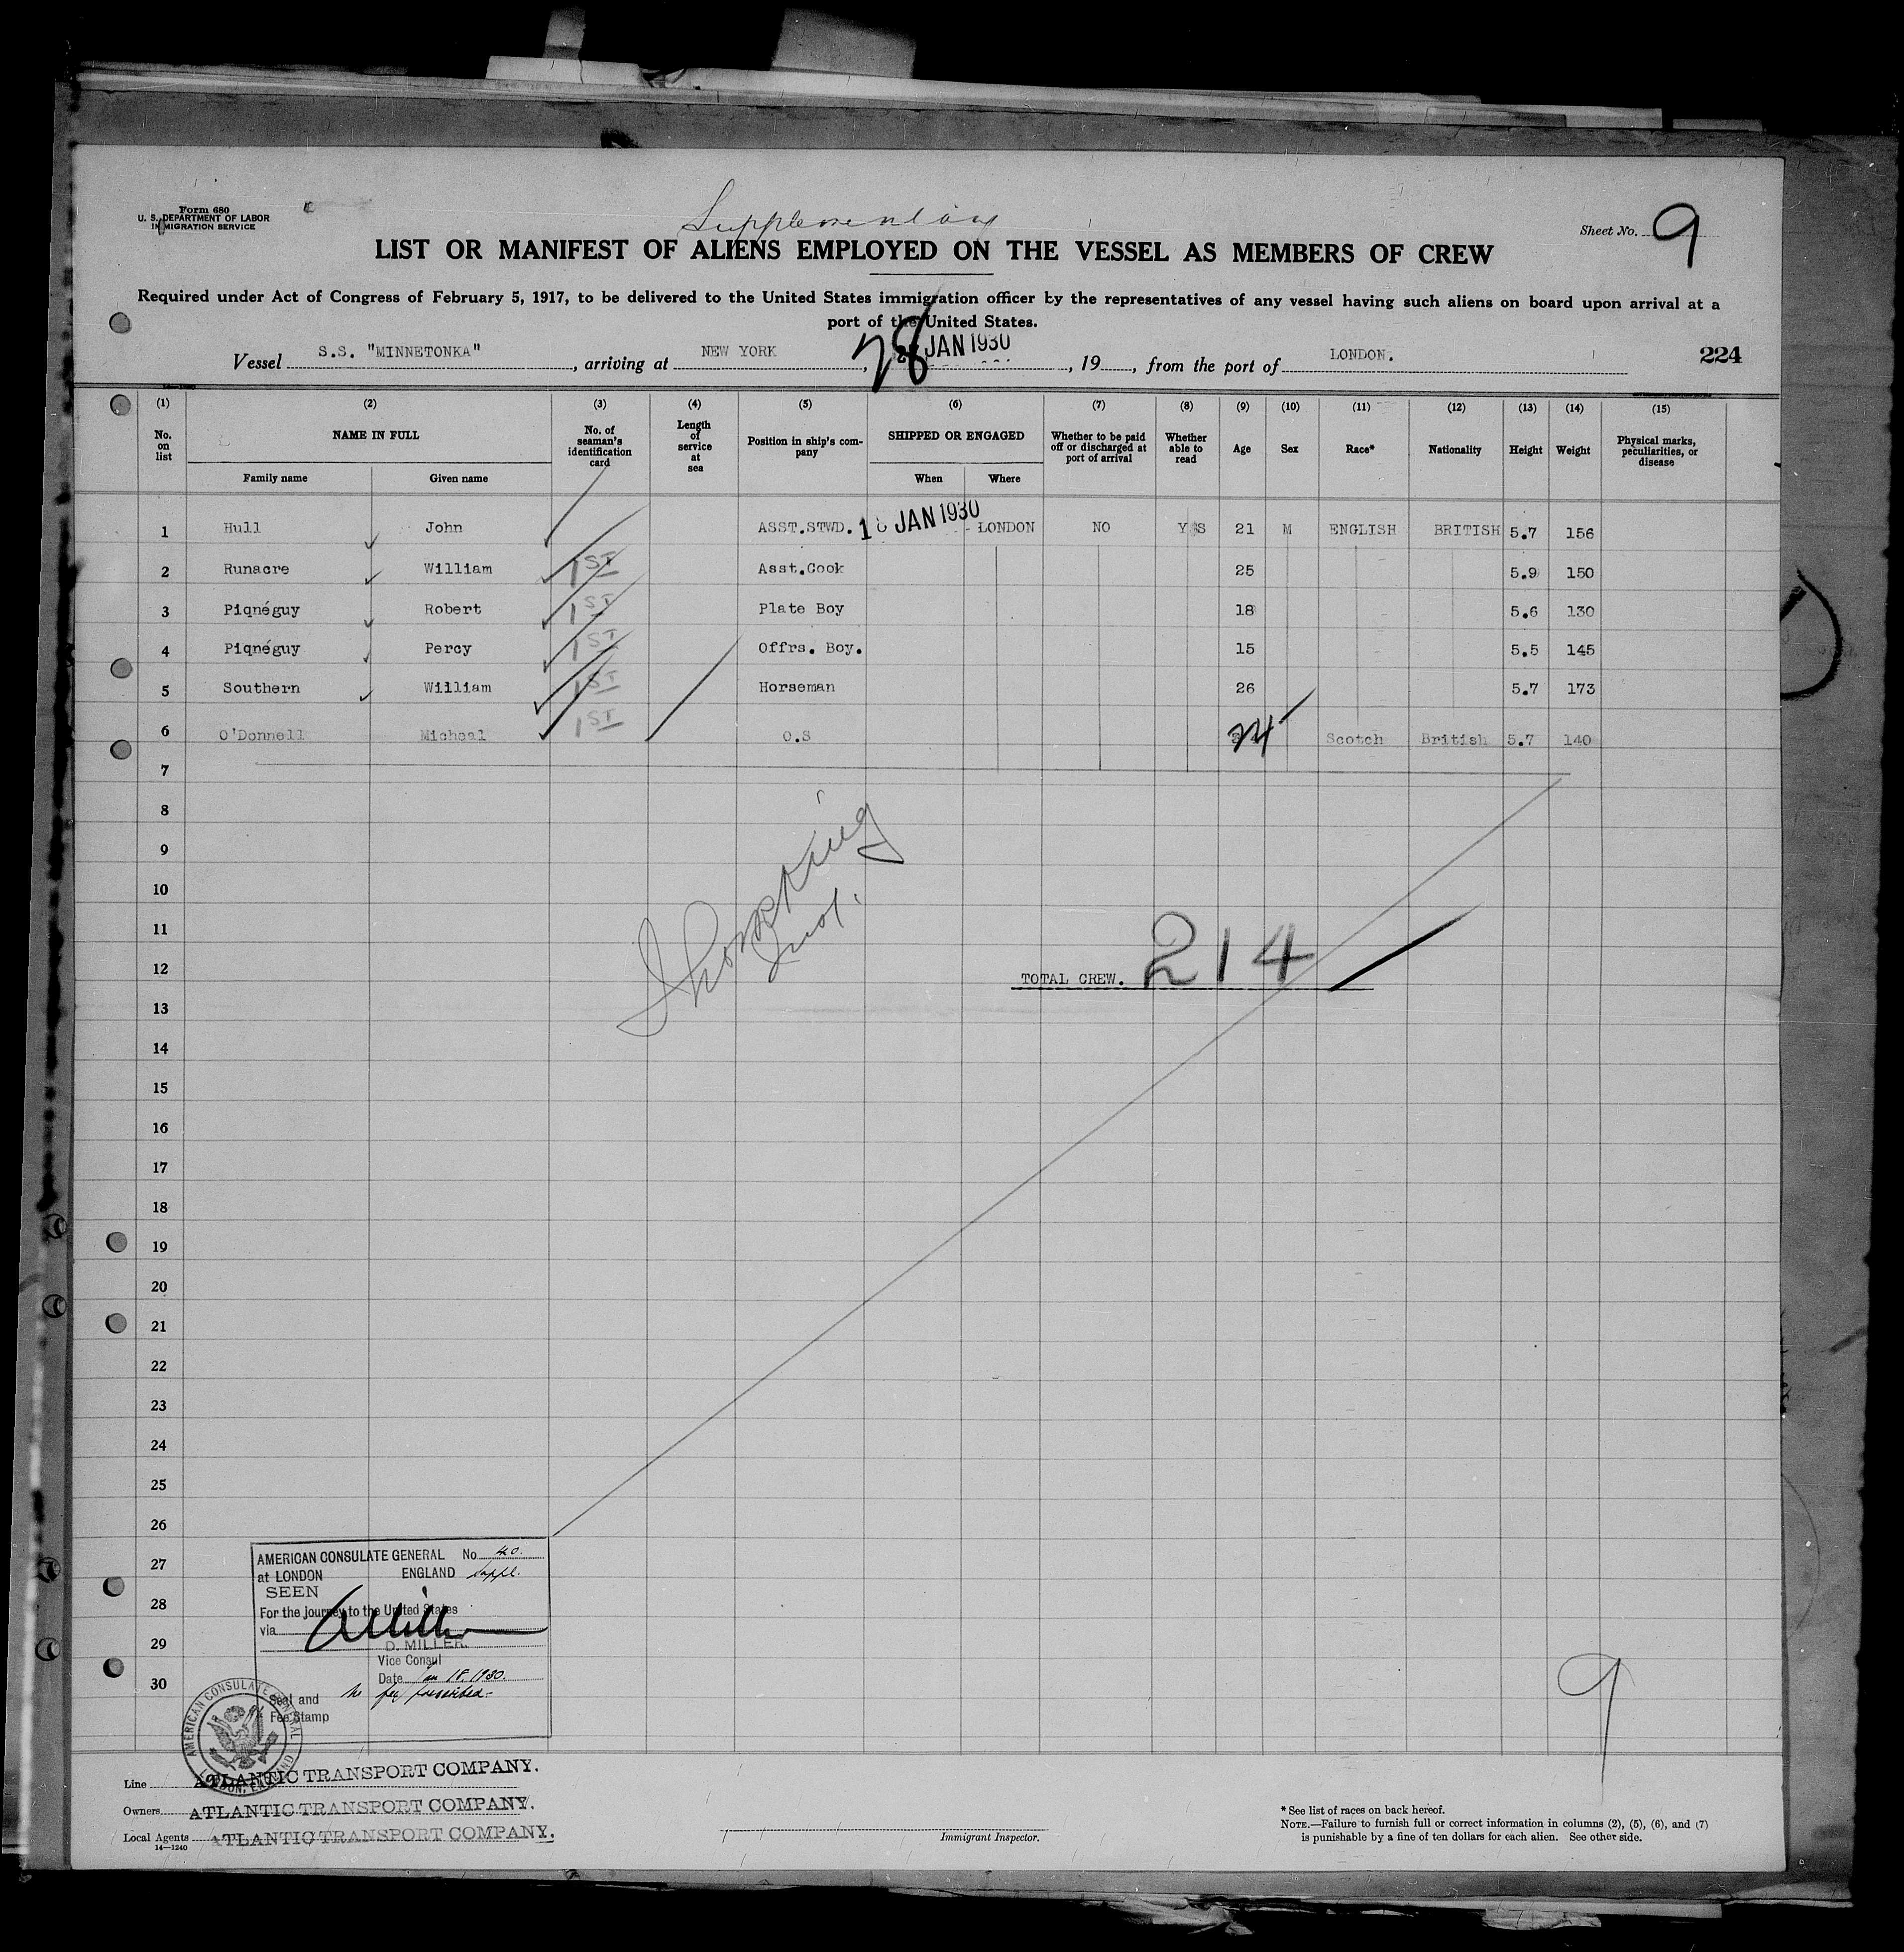 Form 680
U. S. DEPARTMENT OF LABOR
IMMIGRATION SERVICE
Supplementary
Sheet No. 9
LIST OR MANIFEST OF ALIENS EMPLOYED ON THE VESSEL AS MEMBERS OF CREW
Required under Act of Congress of February 5, 1917, to be delivered to the United States immigration officer by the representatives of any vessel having such aliens on board upon arrival at a
port of the United States.
Vessel S.S. "MINNETONKA", arriving at NEW YORK, 28 JAN 1930, 19, from the port of LONDON. 224
(1) (2) (3) (4) (5) (6) (7) (8) (9) (10) (11) (12) (13) (14) (15)
No. on list NAME IN FULL No. of seaman's identification card Length of service at sea Position in ship's company SHIPPED OR ENGAGED Whether to be paid off or discharged at port of arrival Whether able to read Age Sex Race* Nationality Height Weight Physical marks, peculiarities, or disease
Family name Given name When Where
1 Hull John ASST.STWD. 18 JAN 1930 LONDON NO YES 21 M ENGLISH BRITISH 5.7 156
2 Runacre William 1ST Asst.Cook 25 5.9 150
3 Piqnéguy Robert 1ST Plate Boy 18 5.6 130
4 Piqnéguy Percy 1ST Offrs. Boy. 15 5.5 145
5 Southern William 1ST Horseman 26 5.7 173
6 O'Donnell Micheal 1ST O.S 24 Scotch British 5.7 140
7
8
9
10
11
12 TOTAL CREW. 214
13
14
15
16
17
18
19
20
21
22
23
24
25
26
27
28
29
30
AMERICAN CONSULATE GENERAL No 40.
at LONDON ENGLAND Suppl.
SEEN
For the journey to the United States
via
D. MILLER.
Vice Consul
Date Jan 18, 1930.
Seal and No fee prescribed.
Fee Stamp
AMERICAN CONSULATE GENERAL LONDON, ENGLAND
9
Line ATLANTIC TRANSPORT COMPANY.
Owners ATLANTIC TRANSPORT COMPANY.
Local Agents ATLANTIC TRANSPORT COMPANY.
14—1240
Immigrant Inspector.
* See list of races on back hereof.
NOTE.—Failure to furnish full or correct information in columns (2), (5), (6), and (7)
is punishable by a fine of ten dollars for each alien. See other side.